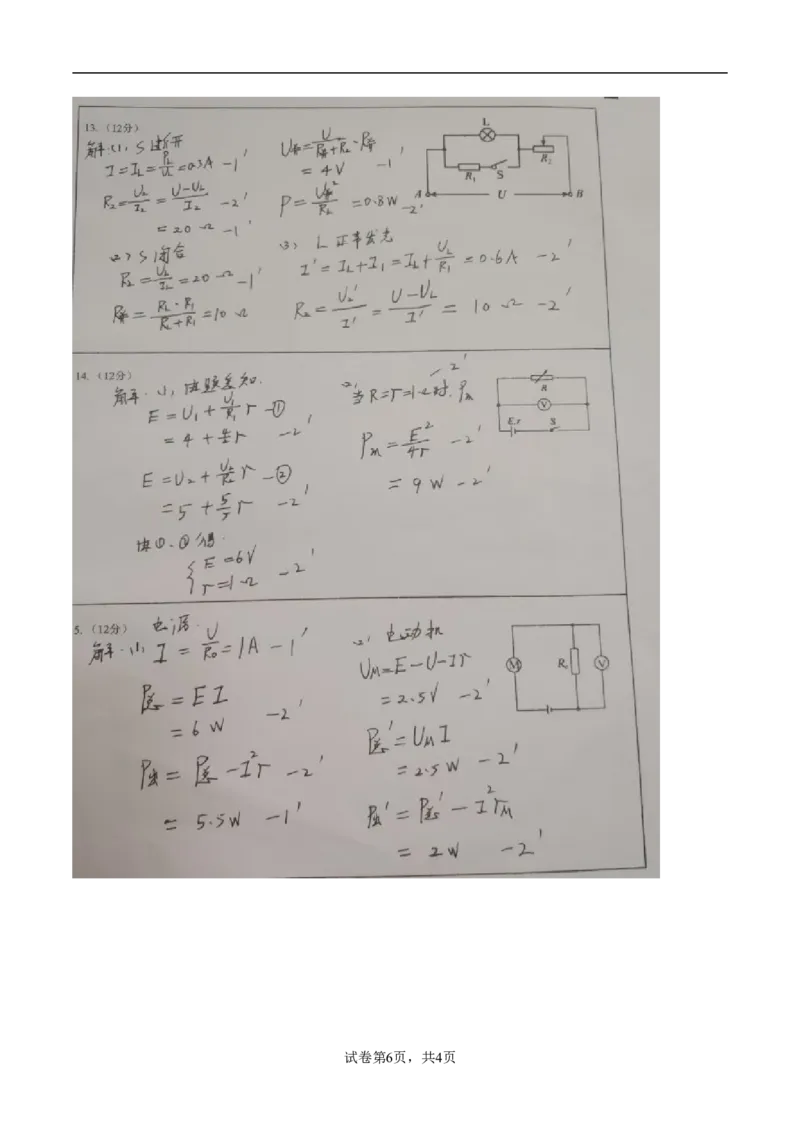 13. (12分)
解:(1) S断开
I=IL=PL/UL=0.3A -1'
R2=U2/I2=U-UL/I2 -2'
=20Ω -1'
(2) S闭合
RL=UL/IL=20Ω -1'
R并=RL·R1/RL+R1=10Ω
U并=U/R并+R2·R并
=4V -1'
P=U并²/RL=0.8W -2'
(3) L正常发光
I'=IL+I1=IL+UL/R1=0.6A -2'
R2=U2'/I'=U-UL/I'=10Ω -2'
L
R1
S
R2
A
U
B
14. (12分)
解:(1) 由题意知.
E=U1+U1/R1 r -①
=4+4/2 r -2'
E=U2+U2/R2 r -②
=5+5/5 r -2'
由①、②得.
E=6V
r=1Ω -2'
(2) 当R=r=1Ω时. PM -2'
PM=E²/4r -2'
=9W -2'
R
V
E,r
S
5. (12分) 电源.
解:(1) I=U/R0=1A -1'
P总=EI
=6W -2'
P出=P总-I²r -2'
=5.5W -1'
(2) 电动机
UM=E-U-Ir
=2.5V -2'
P总'=UMI
=2.5W -2'
P出'=P总'-I²rM
=2W -2'
M
R0
V
试卷第6页，共4页